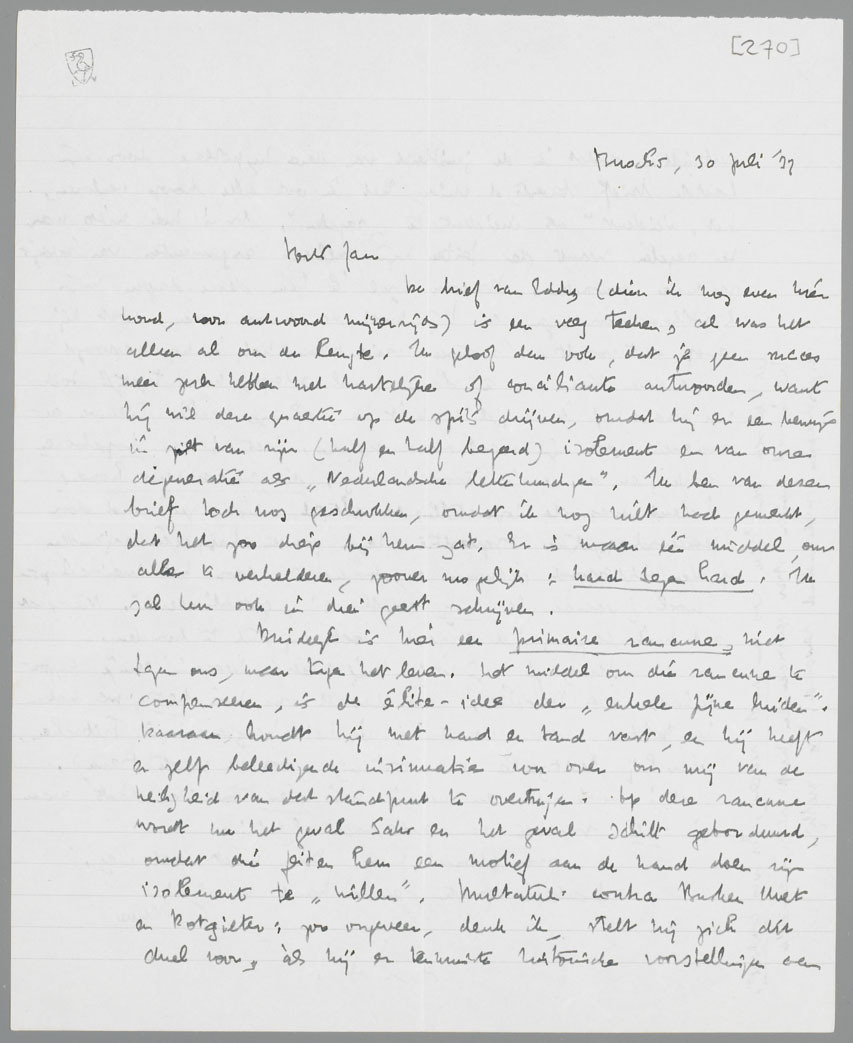 [270]
30 Juli '32
Beste Jan
De brief van Eddy (dien ik nog even hier
houd, voor antwoord mijnerzijds) is een veeg teeken, al was het
alleen al om de lengte. Ik geloof dan ook, dat je geen succes
meer zult hebben met hartelijke of conciliante antwoorden, want
hij wil deze quaestie op de spits drijven, omdat hij er een bewijs
in ziet van zijn (half en half begeerd) isolement en van onze
degeneratie als „Nederlandsche letterkundigen". Ik ben van dezen
brief toch nog geschrokken, omdat ik nog niet had gemerkt,
dat het zoo diep bij hem zat. Er is maar één middel, om
alles te verhelderen, zoover mogelijk: hard tegen hard. Ik
zal hem ook in dien geest schrijven.
Duidelijk is hier een primaire rancune, niet
tegen ons, maar tegen het leven. Het middel om die rancune te
compenseeren, is de élite-idee der „enkele fijne luiden".
Daaraan houdt hij met hand en tand vast, en hij heeft
er zelf beleedigende insinuaties voor over om mij van de
heiligheid van dat standpunt te overtuigen. Op deze rancune
wordt nu het geval Saks en het geval Schilt geborduurd,
omdat die feiten hem een motief aan de hand doen zijn
isolement te „willen". Multatuli contra Busken Huet
en Potgieter: zoo ongeveer, denk ik, stelt hij zich dit
duel voor, als hij er tenminste historische voorstellingen aan